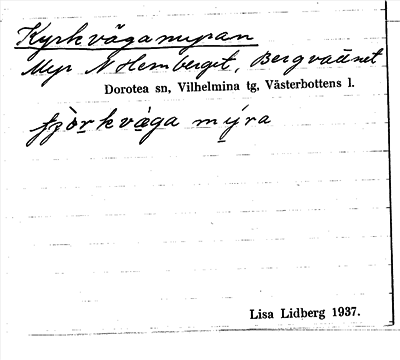 Kyrkvägamyran
Myr N Hemberget, Bergvattnet
Dorotea sn, Vilhelmina tg, Västerbottens l.
fjòrkvǝga mýra
Lisa Lidberg 1937.